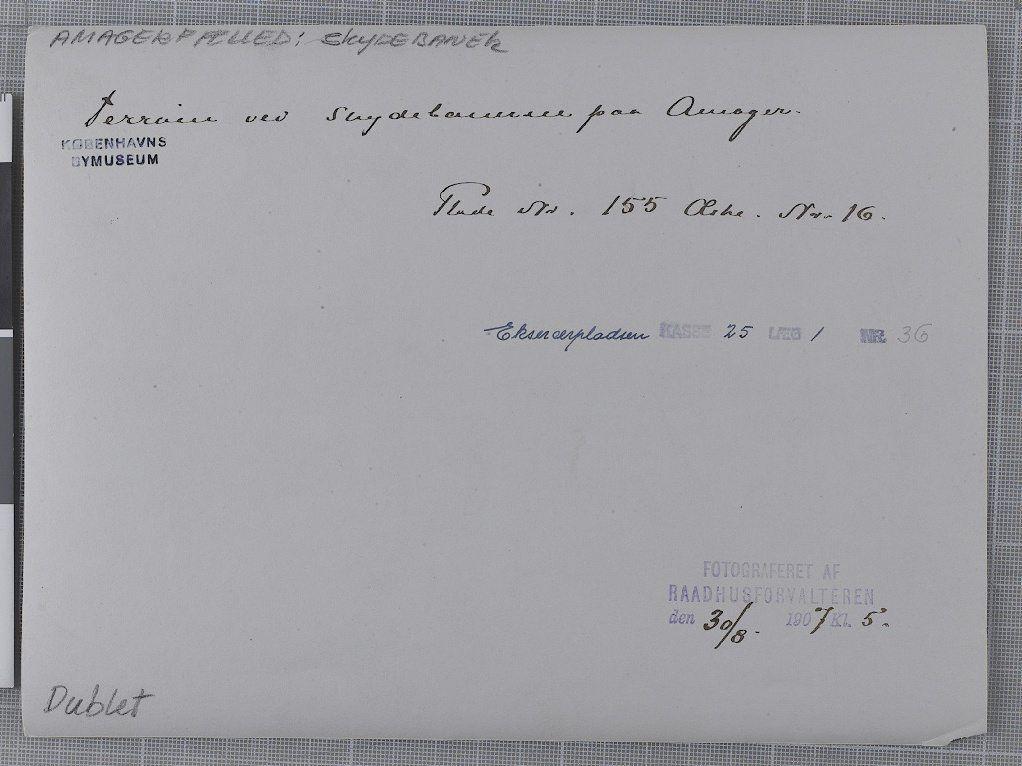 AMAGERFÆLLED: SKYDEBANER
Terrain ved Skydebanerne paa Amager.
KØBENHAVNS
BYMUSEUM
Plade Nr. 155 Æske. Nr. 16.
Ekserserpladsen KASSE 25 LÆG 1 NR. 36
FOTOGRAFERET AF
RAADHUSFORVALTEREN
den 30/8. 1907 Kl. 5.
Dublet